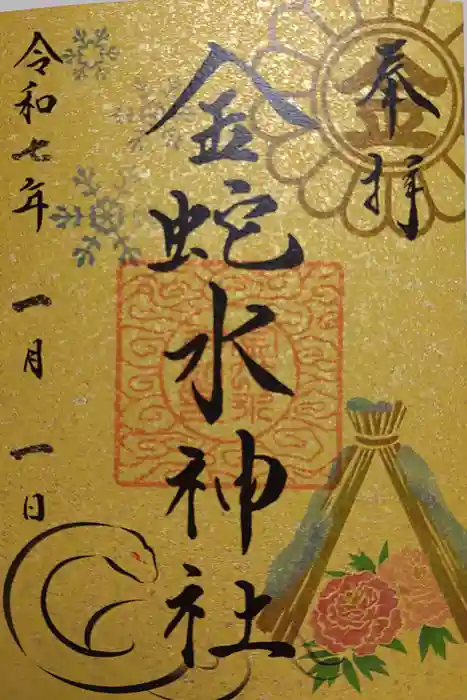 奉拝
金蛇水神社
令和七年 一月 一日